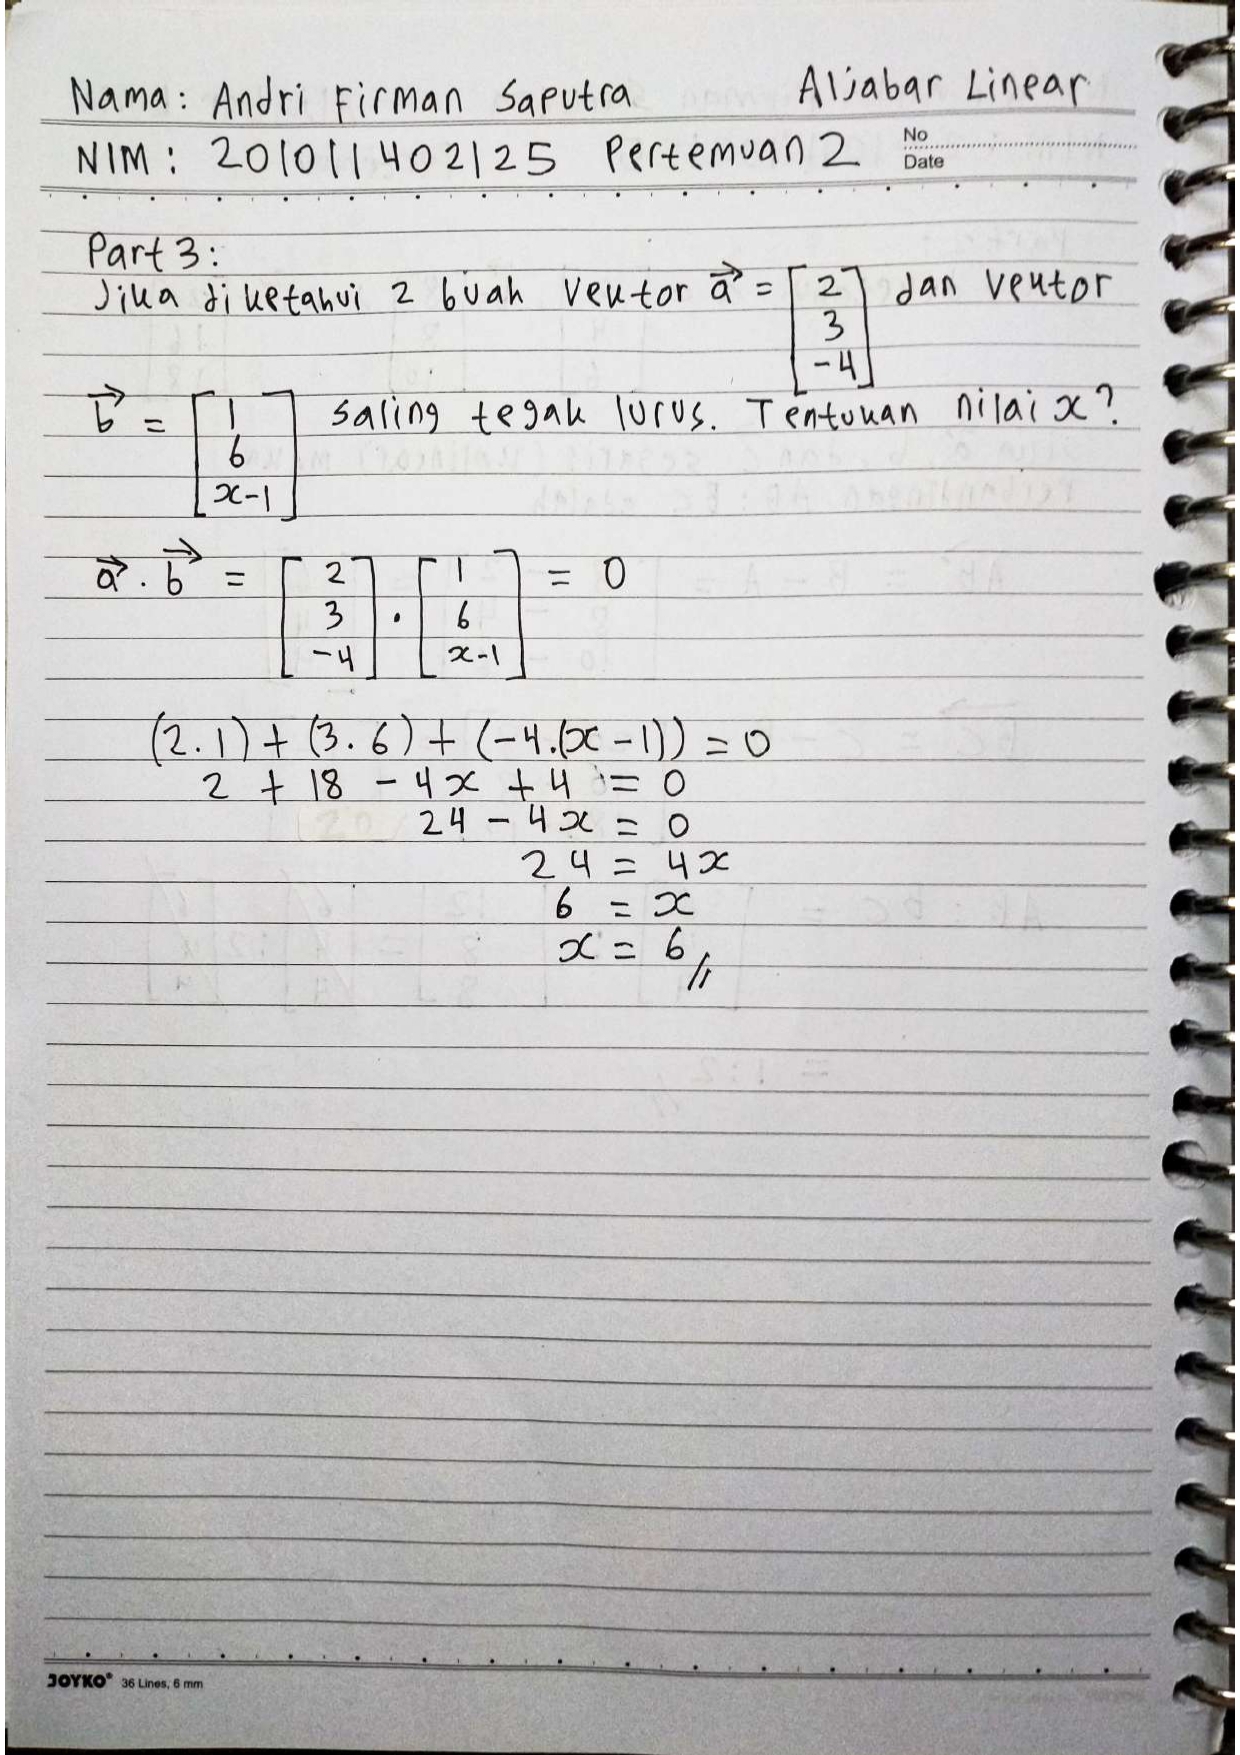 Nama: Andri Firman Saputra Aljabar Linear
NIM: 201011402125 Pertemuan 2 No
Date
Part 3:
Jika diketahui 2 buah vektor a⃗ = [2 3 -4] dan vektor
b⃗ = [1 6 x-1] saling tegak lurus. Tentukan nilai x?
a⃗ . b⃗ = [2 3 -4] . [1 6 x-1] = 0
(2.1) + (3.6) + (-4.(x-1)) = 0
2 + 18 - 4x + 4 = 0
24 - 4x = 0
24 = 4x
6 = x
x = 6 //
JOYKO® 36 Lines, 6 mm